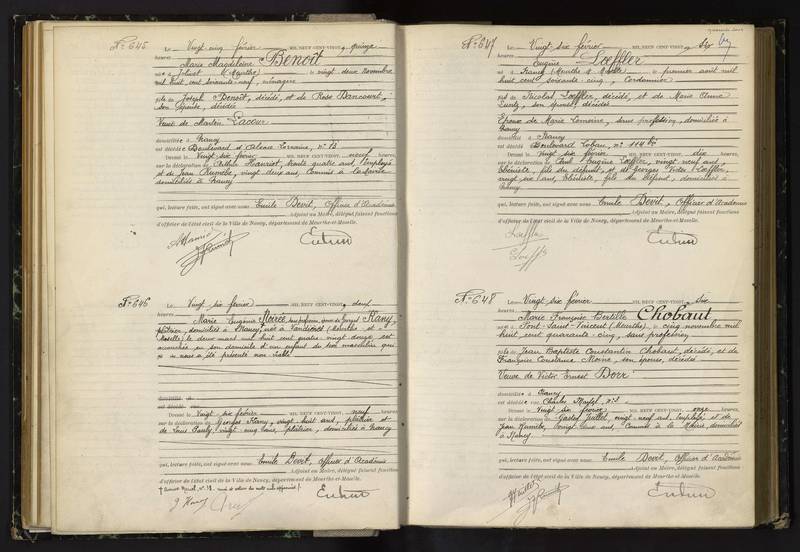 N° 645
Le Vingt cinq février MIL NEUF CENT-VINGT, quinze
heures
Marie Magdeleine Benoît
née à (Manthe) le vingt deux novembre
mil huit cent soixante neuf, ménagère
fille de Joseph Benoît, décédé, et de Rose Dancourt,
son épouse, décédée
Veuve de Martin Lacour
domiciliée à Nancy
est décédée Boulevard d'Alsace Lorraine, n° 15
Dressé le Vingt six février MIL NEUF CENT-VINGT, neuf heures,
sur la déclaration de trente quatre ans, Employé
et de Jean vingt deux ans, Commis à la Mairie
domiciliés à Nancy
qui, lecture faite, ont signé avec nous Emile Devit, Officier d'Académie
Adjoint au Maire, délégué faisant fonctions
d'officier de l'état civil de la Ville de Nancy, département de Meurthe-et-Moselle.
N° 646
Le Vingt six février MIL NEUF CENT-VINGT, deux
heures
Marie Eugénie sans profession, épouse de Georges Hany,
plâtrier, domiciliés à Nancy, née à Vandières (Meurthe et
Moselle) le deux mars mil huit cent quatre vingt douze, est
accouchée en son domicile d'un enfant du sexe masculin qui
nous a été présenté non viable
est décédé rue
Dressé le Vingt six février MIL NEUF CENT-VINGT, neuf heures,
sur la déclaration de Georges Hany, vingt huit ans, plâtrier et
de Louis Pauly, vingt cinq ans, plâtrier, domiciliés à Nancy
qui, lecture faite, ont signé avec nous Emile Devit, Officier d'Académie
Adjoint au Maire, délégué faisant fonctions
d'officier de l'état civil de la Ville de Nancy, département de Meurthe-et-Moselle.
N° 647
Le Vingt six février MIL NEUF CENT-VINGT, six
heures
Eugène Loeffler
né à Nancy (Meurthe & Moselle) le premier août mil
huit cent soixante cinq, Cordonnier
fils de Nicolas Loeffler, décédé, et de Marie Anne
Lentz, son épouse, décédée
Epoux de Marie Lemoine, sans profession, domiciliée à
Nancy
domicilié à Nancy
est décédé Boulevard Lobau, n° 114 bis
Dressé le Vingt six février MIL NEUF CENT-VINGT, dix heures,
sur la déclaration de Paul Eugène Loeffler, vingt neuf ans,
ébéniste, fils du défunt, et de Georges Victor Loeffler,
vingt six ans, ébéniste, fils du défunt, domiciliés à
Nancy
qui, lecture faite, ont signé avec nous Emile Devit, Officier d'Académie
Adjoint au Maire, délégué faisant fonctions
d'officier de l'état civil de la Ville de Nancy, département de Meurthe-et-Moselle.
N° 648
Le Vingt six février MIL NEUF CENT-VINGT, six
heures
Marie Françoise Bertille Chobaut
née à Pont Saint-Vincent (Meurthe) le cinq novembre mil
huit cent quarante cinq, sans profession
fille de Jean Baptiste Constantin Chobaut, décédé, et de
Françoise Constance Moine, son épouse, décédée
Veuve de Victor Ernest Dorr
domiciliée à Nancy
est décédée rue Charles Martel, n° 1
Dressé le Vingt six février MIL NEUF CENT-VINGT, onze heures,
sur la déclaration de Gaston vingt neuf ans, Employé et de
Jean vingt deux ans, Commis à la Mairie, domiciliés
à Nancy
qui, lecture faite, ont signé avec nous Emile Devit, Officier d'Académie
Adjoint au Maire, délégué faisant fonctions
d'officier de l'état civil de la Ville de Nancy, département de Meurthe-et-Moselle.